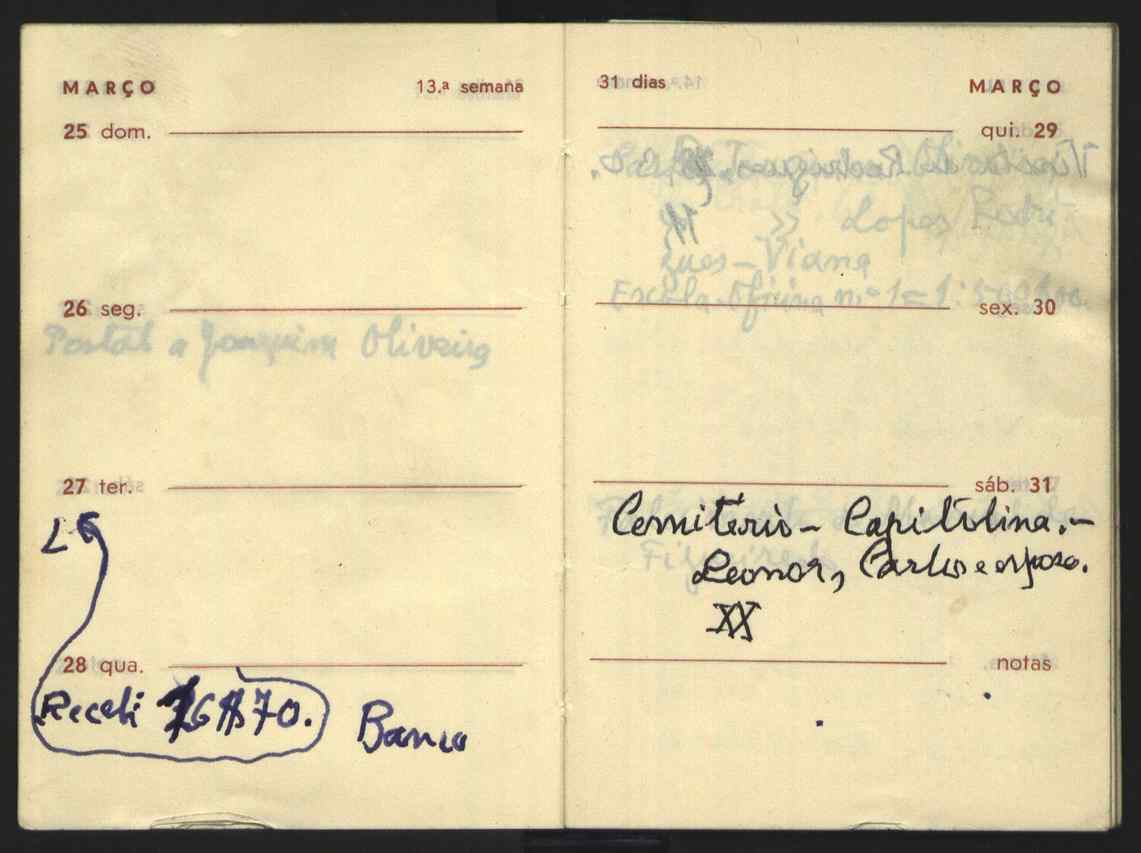 MARÇO 13.ª semana
25 dom.
26 seg.
Postal a Joaquim Oliveira
27 ter.
28 qua.
Recebi
Banco
31 dias MARÇO
qui. 29
» Lopes Rodri-
gues - Viana
sex. 30
Escola-Oficina nº 1 =
sáb. 31
Cemitério - Capitolina. -
Leonor, Carlos e esposo.
XX
notas